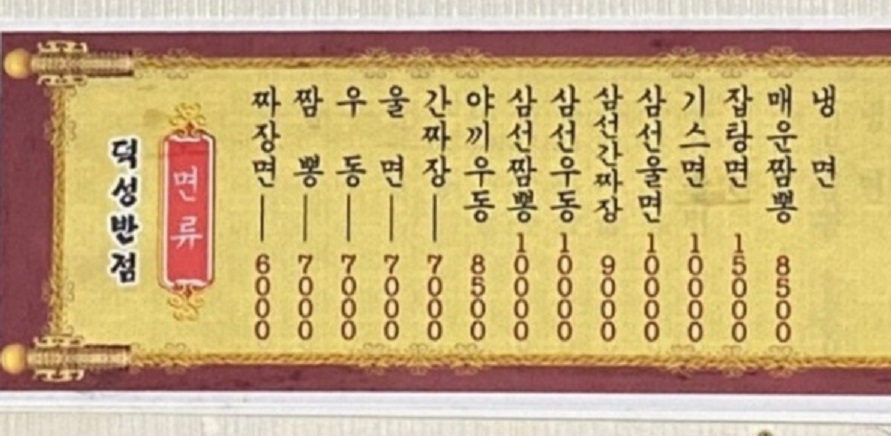 덕성반점
면류
짜장면 6000
짬뽕 7000
우동 7000
울면 7000
간짜장 7000
야끼우동 8500
삼선짬뽕 10000
삼선우동 10000
삼선간짜장 9000
삼선울면 10000
기스면 10000
잡탕면 15000
매운짬뽕 8500
냉면